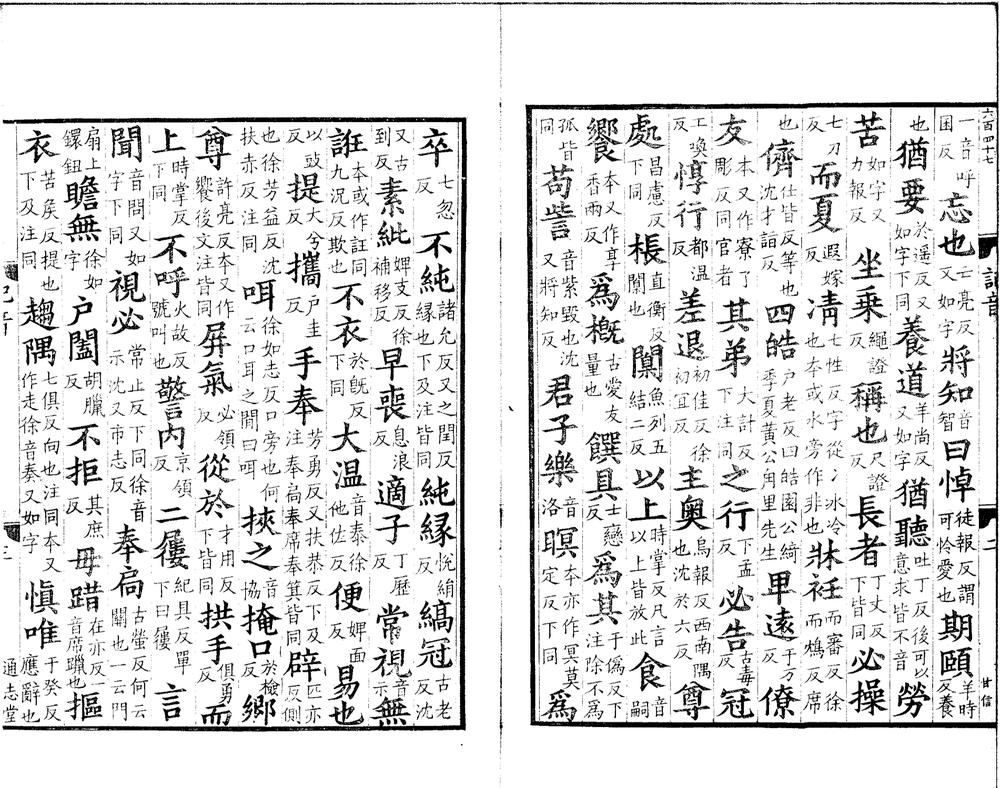 六百四十七
甘信
一音呼困反忘也亡亮反又如字將知音智曰悼徒報反謂可怜愛也期頤羊時反養
也猶要於遥反又如字下同養道羊尚反又如字猶聽吐丁反後可以意求皆不音勞
苦如字又力報反坐乗繩證反稱也尺證反長者丁丈反下皆同必操
七刀反而夏遐嫁反凊七性反字從冫冰冷也本或水旁作非也牀衽而審反徐而鴆反席
也儕仕皆反等也沈才詣反四皓户老反四皓園公綺季夏黄公甪里先生卑逺于万反僚
友本又作寮了彫反同官者其弟大計反下注同之行下孟反必告古毒反冠
工喚反惇行都温反差退初佳反徐初冝反主奥烏報反西南隅也沈於六反尊
處昌慮反下同棖直衡反闑也闑魚列五結二反以上時掌反凡言以上皆放此食音嗣
饗本又作享香兩反爲槪古愛友量也饌具士戀反爲其于僞反下注除不爲
孤皆同茍訾音紫毁也沈又將知反君子樂音洛瞑本亦作冥莫定反下同爲
卒七忽反不純諸允反又之閏反縁也下及注皆同純縁恱絹反縞冠古老反沈
又古到反素紕婢支反徐補移反早喪息浪反適子丁歷反常視音示無
誑本或作註同九況反欺也不衣於旣反下同大温音泰徐他佐反便婢面反易也
以豉反提大兮反攜户圭反手奉芳勇反又扶恭反下及注奉扃奉席奉箕皆同辟匹亦反側
也徐芳益反沈扶赤反注同咡徐如志反口旁也何云口耳之閒曰咡挾之音協掩口於檢反鄉
尊許亮反本又作嚮後文注皆同屏氣必領反從於才用反下皆同拱手俱勇反而
上時掌反下同不呼火故反號叫也警内京領反二屨紀具反單下曰屨言
聞音問又如字下同視必常止反下同徐音示沈又市志反奉扃古螢反何云關也一云門
扇上鐶鈕瞻無徐如字户闔胡臘反不拒其庶反毋踖在亦反一音席躐也摳
衣苦侯反提也下及注同趨隅七俱反向也注同本又作走徐音奏又如字慎唯于癸反應辭也
通志堂